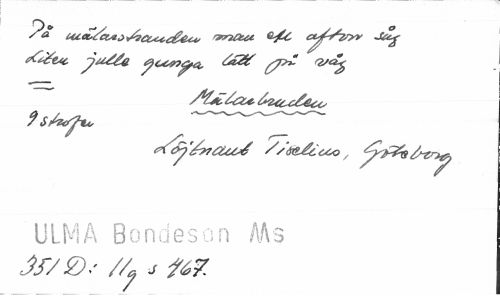 På mälarstranden man en afton såg
Liten julle gunga lätt på våg
=
Mälarbruden
9 strofer
Löjtnant Tiselius, Göteborg
ULMA Bondeson Ms
351 D: 11 g s 467.